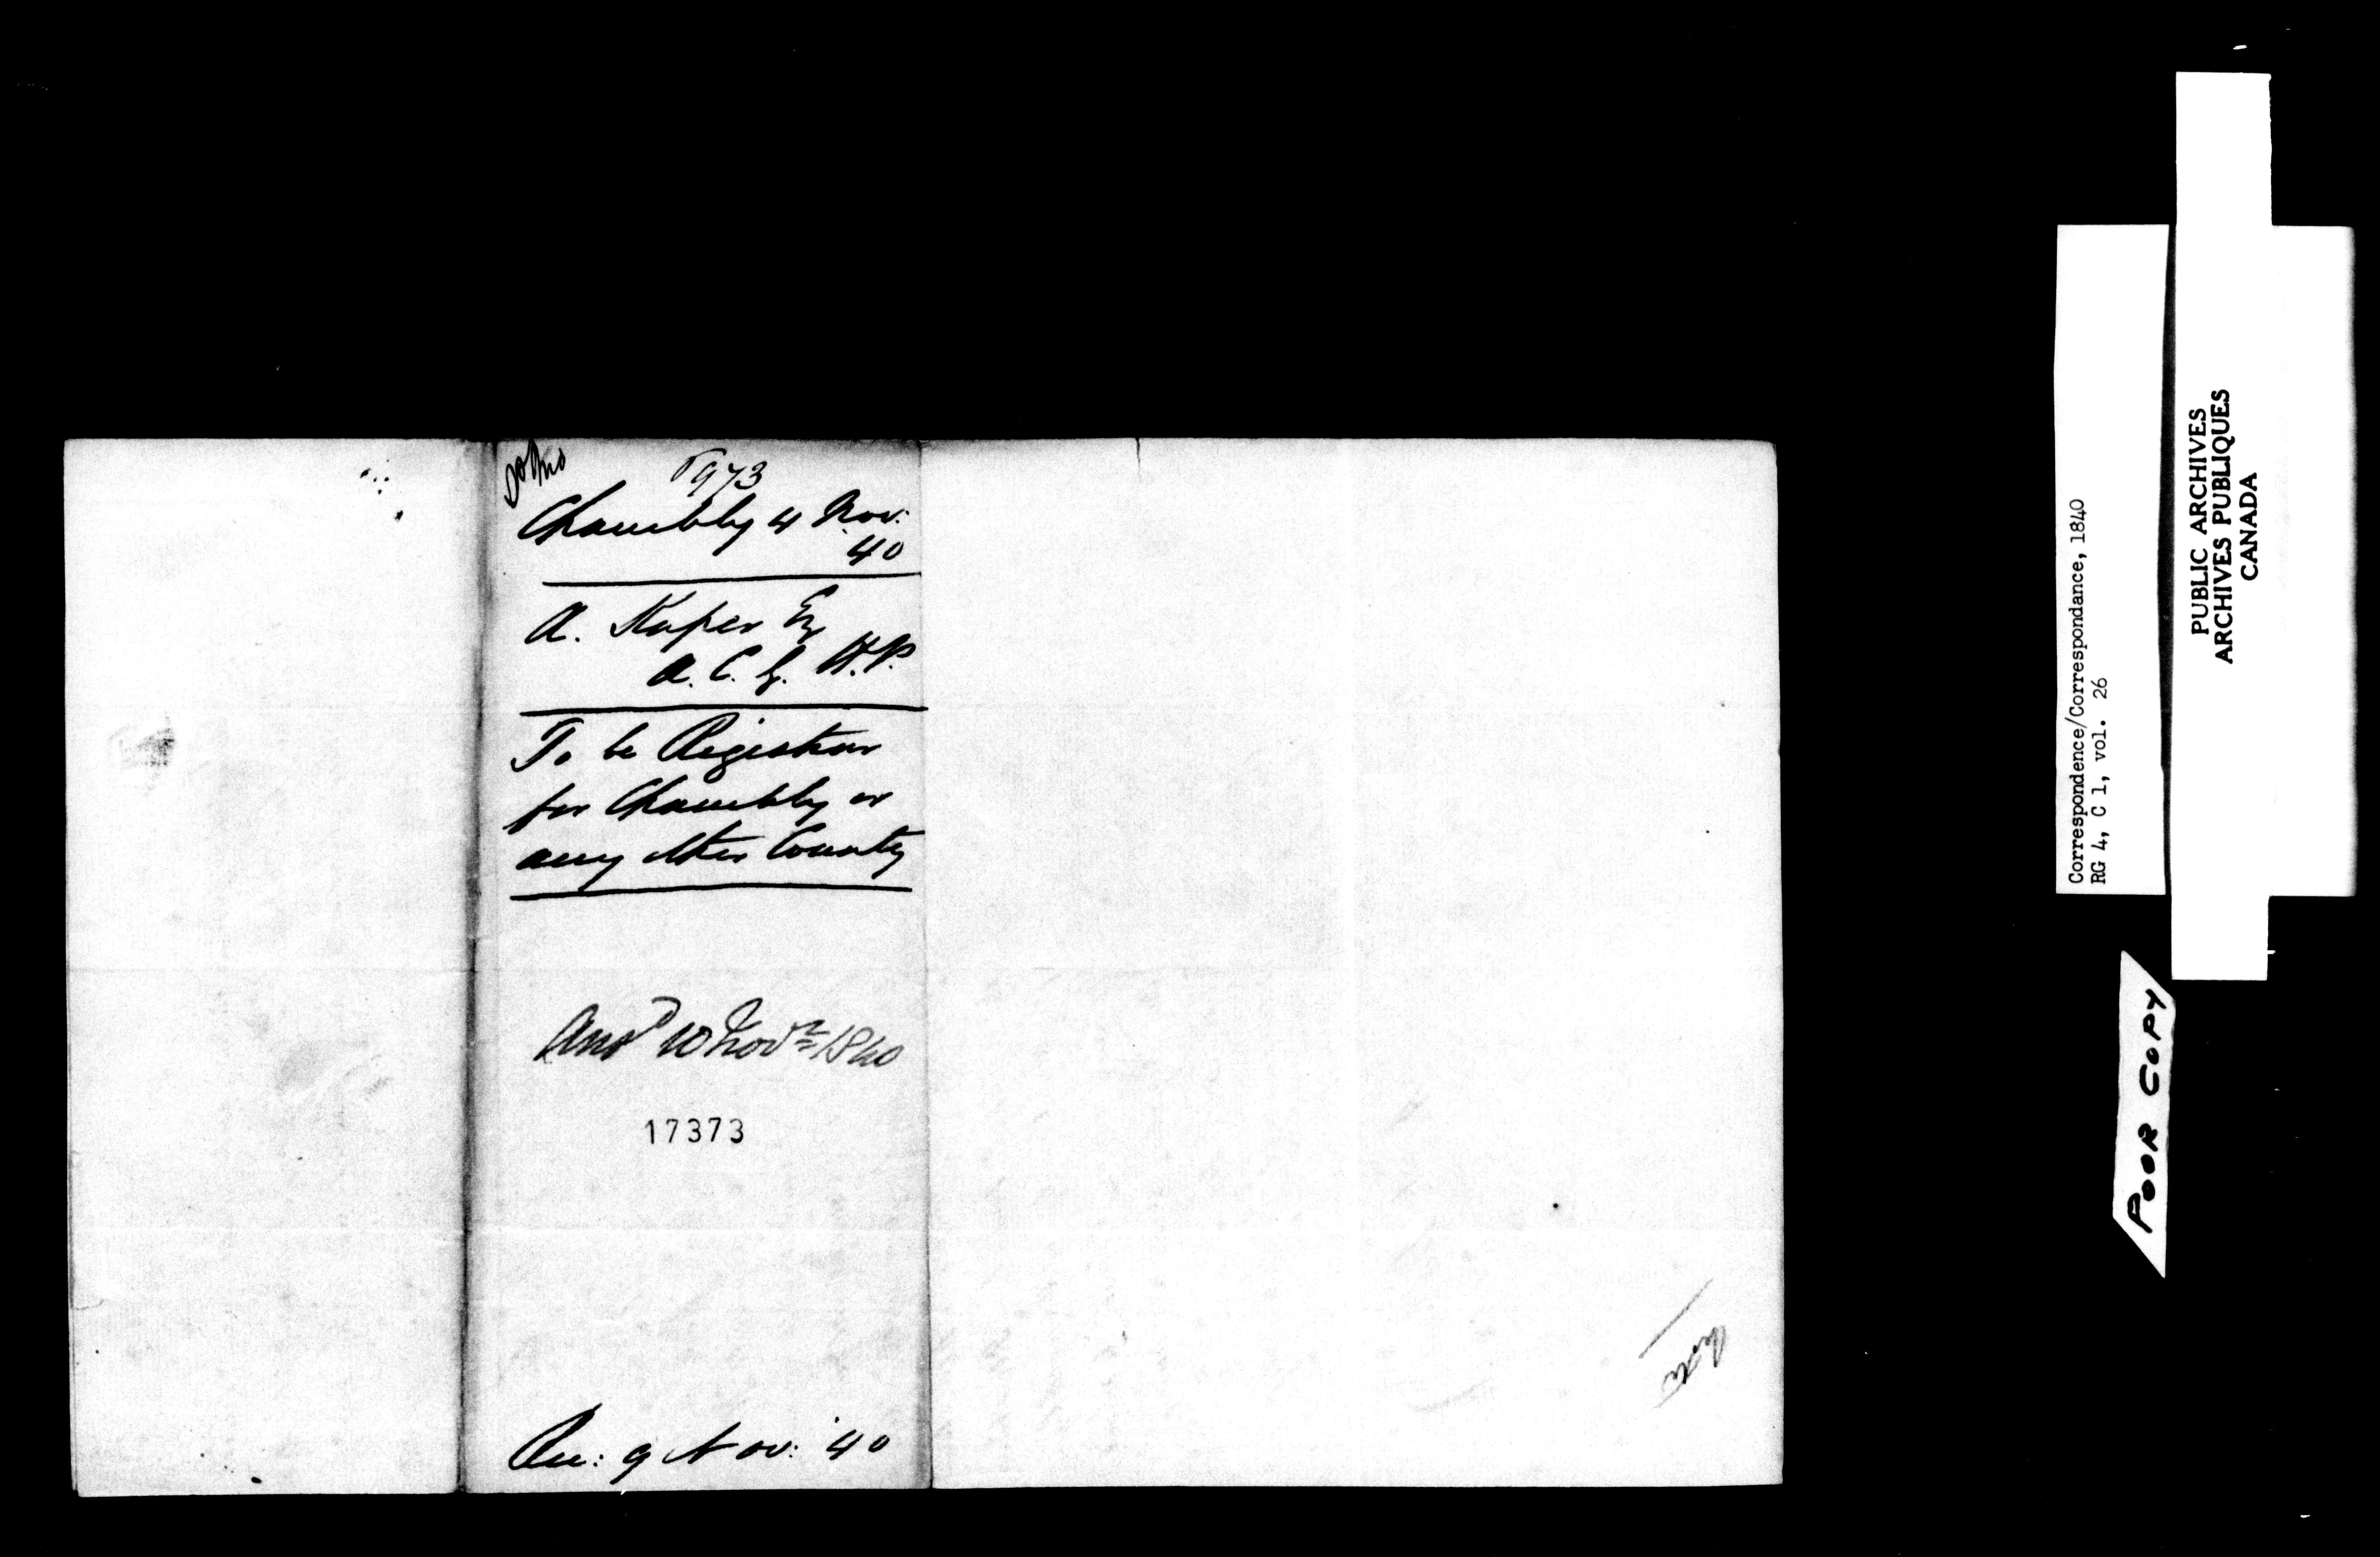 1973
Chambly 4 Nov:
40
A. Kuper Esq
A. C. G. H. P.
To be Registrar
for Chambly or
any other County
Ansd 10 Novr 1840
17373
Rec: 9 Nov: 40
Correspondence/Correspondance, 1840
RG 4, C 1, vol. 26
PUBLIC ARCHIVES
ARCHIVES PUBLIQUES
CANADA
POOR COPY